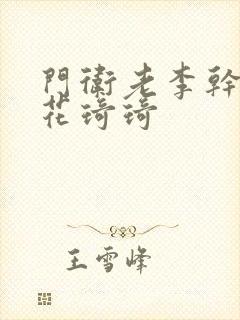 門衛老李幹
花琦琦
王雪峰